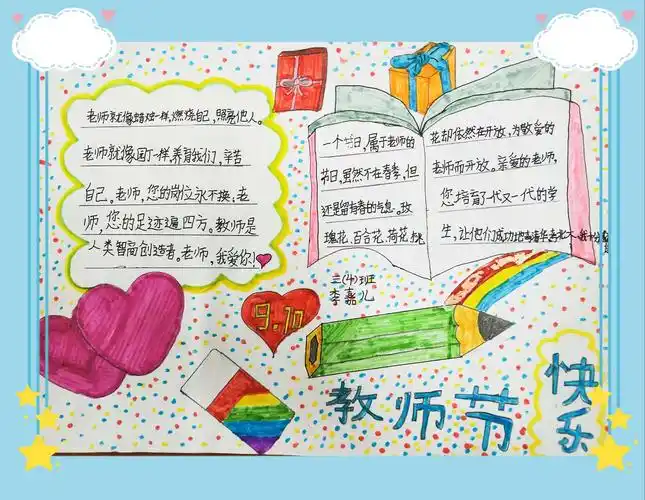 老师就像蜡烛一样,燃烧自己,照亮他人。
老师就像园丁一样养育我们,辛苦
自己。老师,您的岗位永不换,老
师,您的足迹遍四方。教师是
人类智高创造者。老师,我爱你!
一个节日,属于老师的
节日,虽然不在春季,但
还是留有春的气息。玫
瑰花、百合花、荷花、桃
花却依然在开放,为敬爱的
老师而开放。亲爱的老师,
您培育了一代又一代的学
生,让他们成功地
三(4)班
李嘉儿
9.10
教师节
快乐